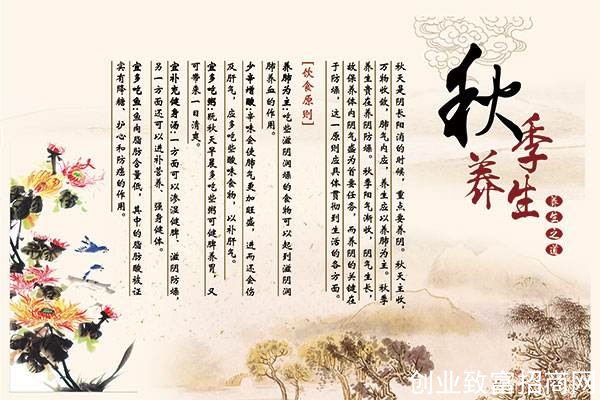 秋季养生
养生之道
秋天是阴长阳消的时候，重点要养阴。秋天主收，
万物收敛，肺气内应，养生应以养肺为主。秋季
养生贵在养阴防燥。秋季阳气渐收，阴气生长，
故保养体内阴气盛为首要任务，而养阴的关键在
于防燥，这一原则应具体贯彻到生活的各方面。
[饮食原则]
养肺为主:吃些滋阴润燥的食物可以起到滋阴润
肺养血的作用。
少辛增酸:辛味会使肺气更加旺盛，进而还会伤
及肝气，应多吃些酸味食物，以补肝气。
宜多吃粥:阮秋天早晨多吃些粥可健脾养胃，又
可带来一日清爽。
宜补充健身汤:一方面可以渗湿健脾、滋阴防燥，
另一方面还可以进补营养、强身健体。
宜多吃鱼:鱼肉脂肪含量低，其中的脂肪酸被证
实有降糖、护心和防癌的作用。
创业致富招商网